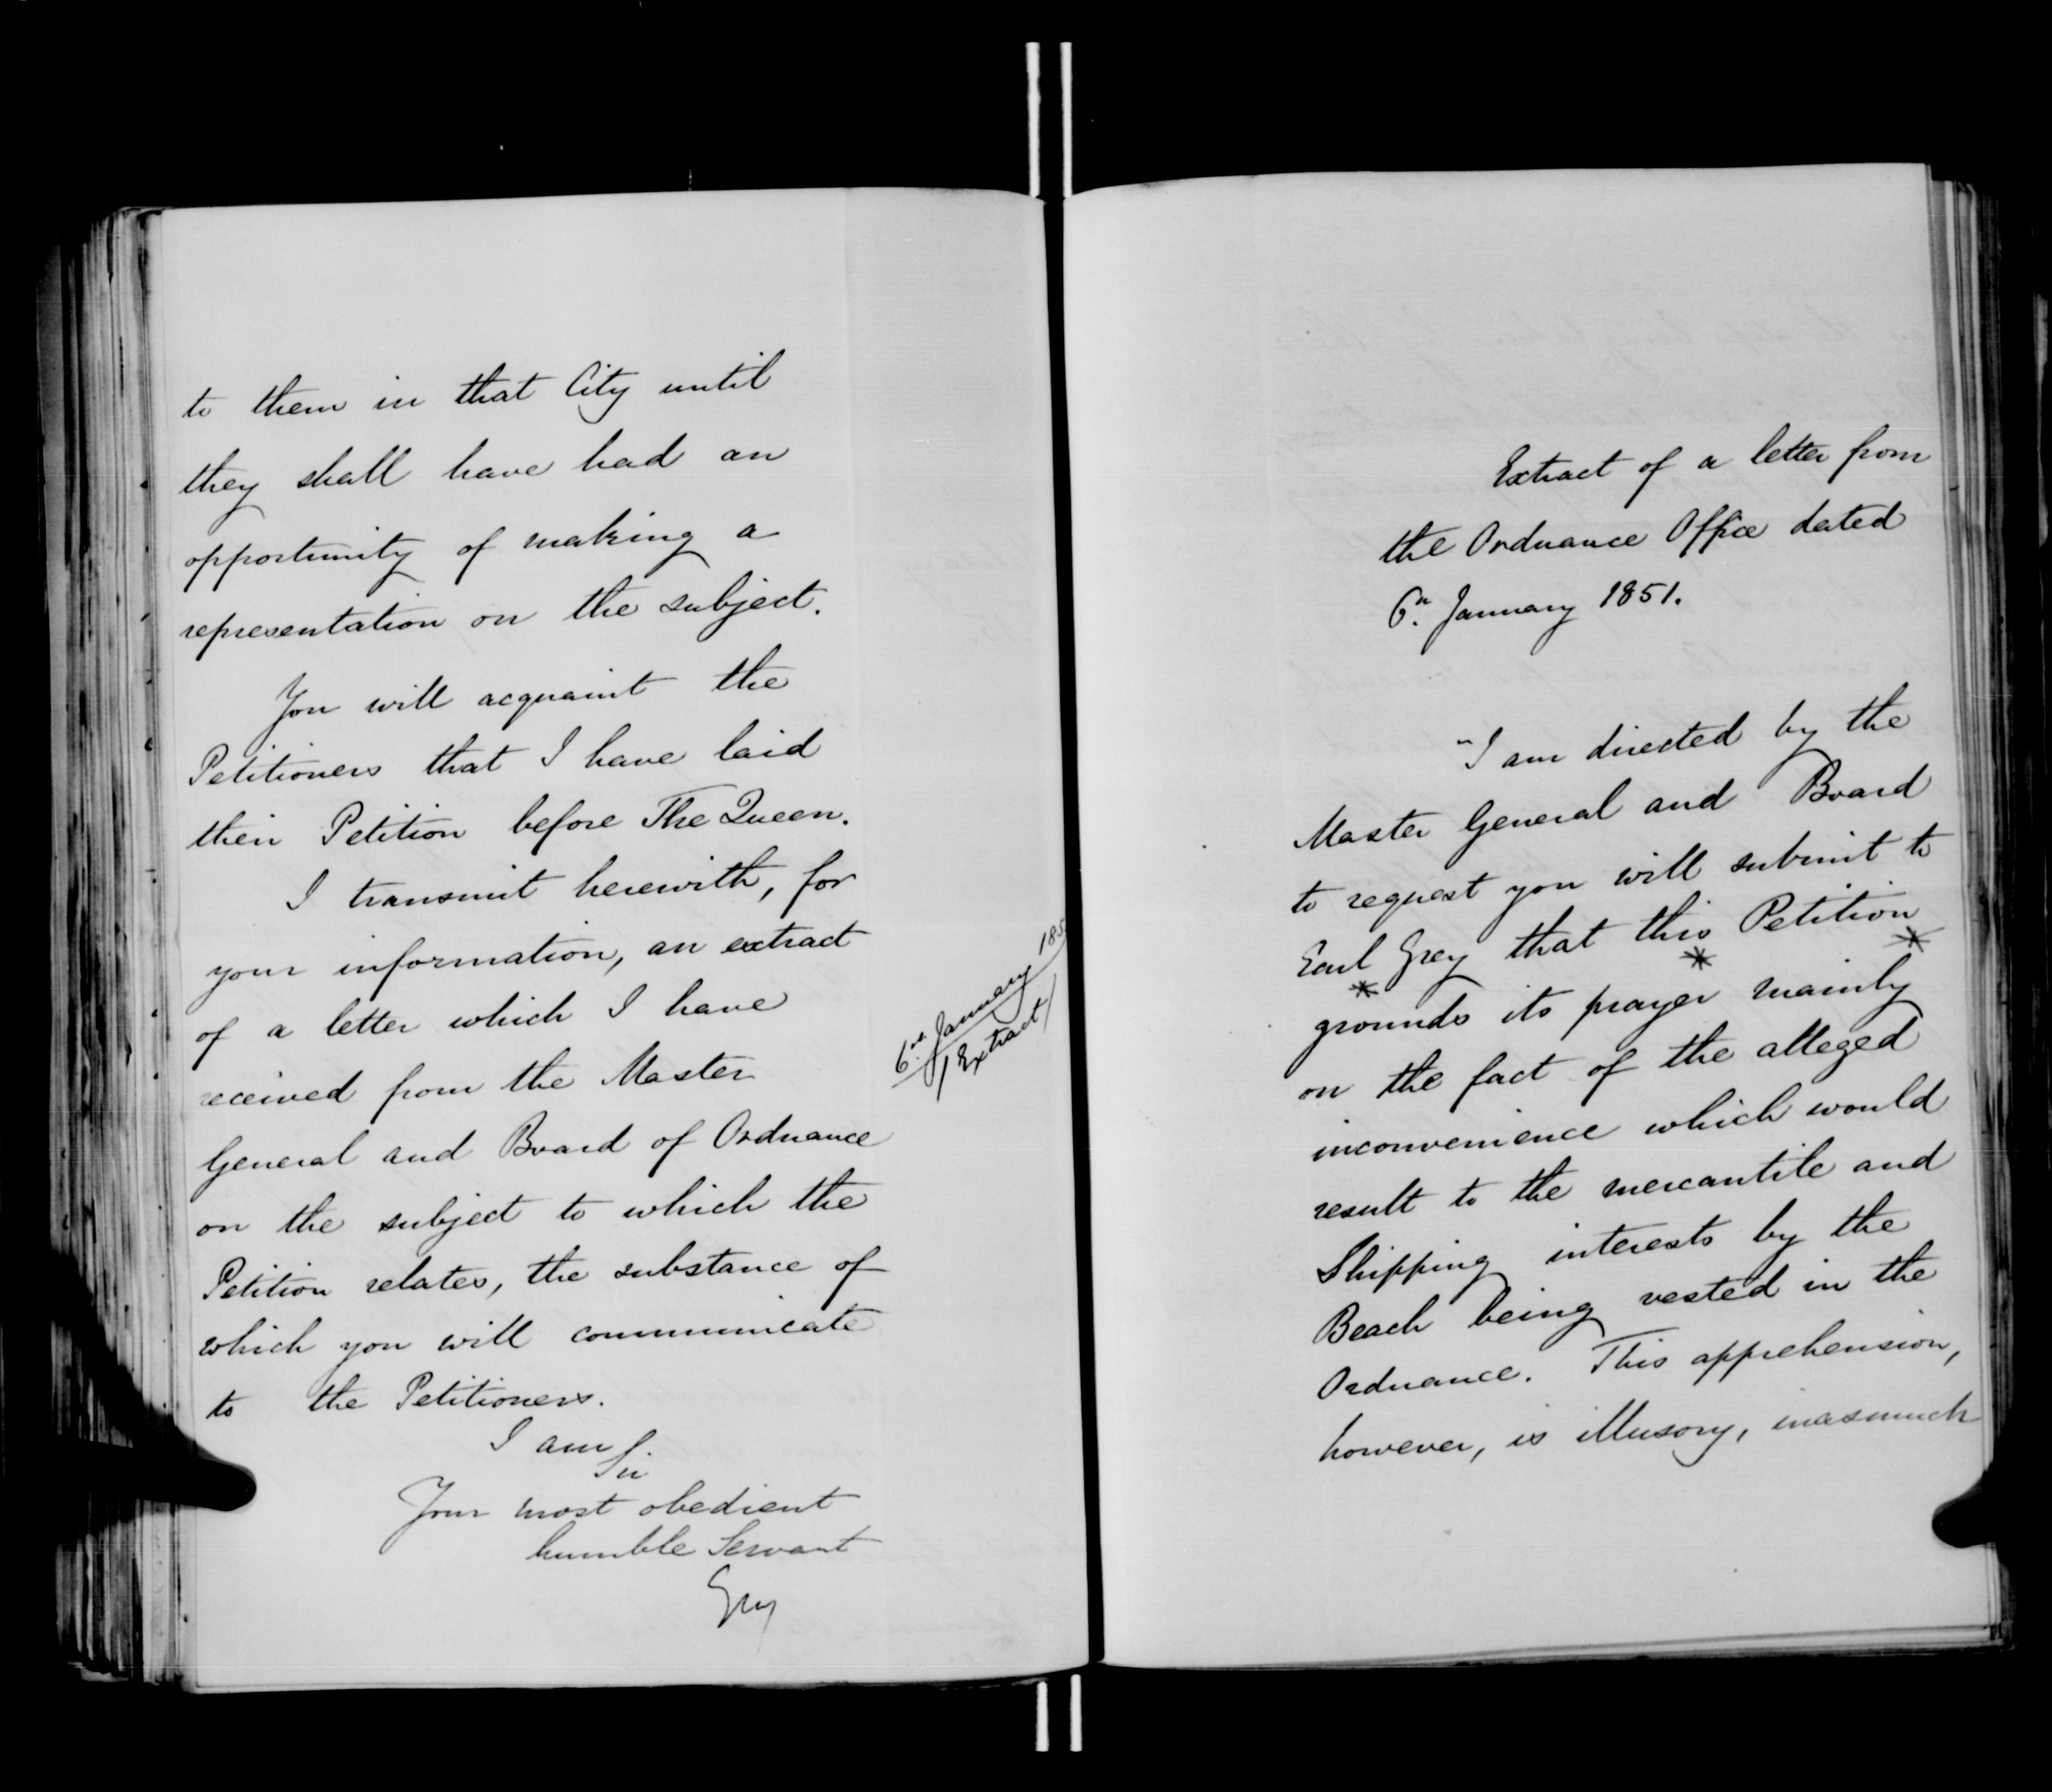 to them in that City until
they shall have had an
opportunity of making a
representation on the subject.
You will acquaint the
Petitioners that I have laid
their Petition before The Queen.
I transmit herewith, for
your information, an extract
of a letter which I have
received from the Master
General and Board of Ordnance
on the subject to which the
Petition relates, the substance of
which you will communicate
to the Petitioners.
I am
Sir
Your most obedient
humble Servant
Grey
January 185
Extract
Extract of a letter from
the Ordnance Office dated
6th January 1851.
"I am directed by the
Master General and Board
to request you will submit to
Earl Grey that this Petition
* * *
grounds its prayer mainly
on the fact of the alleged
inconvenience which would
result to the mercantile and
Shipping interests by the
Beach being vested in the
Ordnance. This apprehension,
however, is illusory, inasmuch